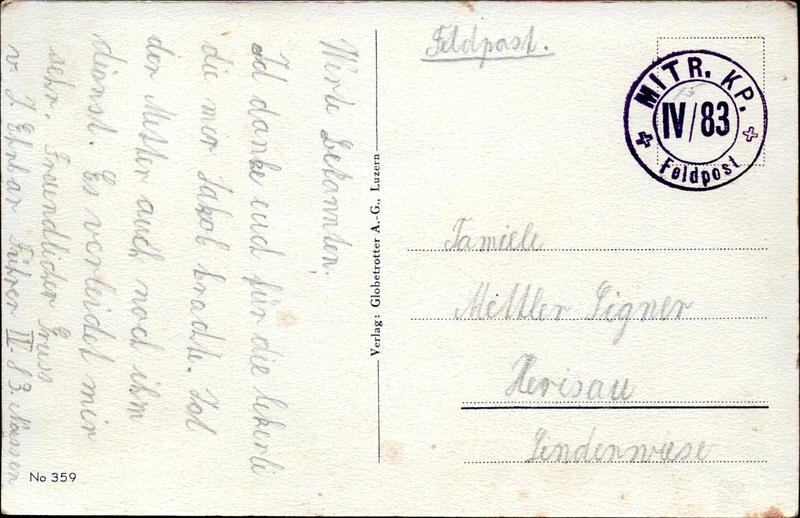 Werte Bekannten!
Ich danke eud für die lekerli
die mir Jakob bradte. Ist
der Metler auch noch ihm
dienst. Es verleidet mir
sehr. Freundlicher Gruss
v. J. Ehrbar Führer IV. 83.
No 359
Verlag: Globetrotter A.-G., Luzern
Feldpost.
MITR. KP.
IV/83
Feldpost
Familie
Mettler Signer
Herisau